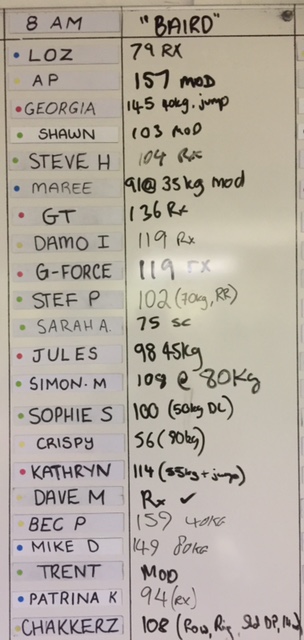 8 AM "BAIRD"
LOZ 79 RX
AP 157 MOD
GEORGIA 145 40kg. jump
SHAWN 103 MOD
STEVE H 104 Rx
MAREE 91@ 35kg mod
GT 136 Rx
DAMO I 119 Rx
G-FORCE 119 rx
STEF P 102 (70kg, RR)
SARAH A. 75 sc
JULES 98 45kg
SIMON. M 108 @ 80Kg
SOPHIE S 100 (50kg DL)
CRISPY 56 (90kg)
KATHRYN 114 (55kg + jump)
DAVE M Rx ✓
BEC P 159 40KG
MIKE D 149 80kg
TRENT MOD
PATRINA K 94 (rx)
CHAKKERZ 108 (Row, DP,